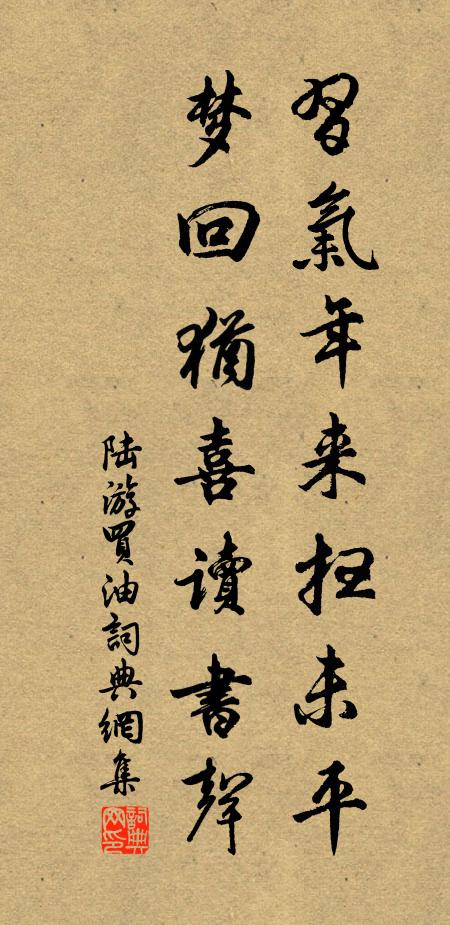 習氣年来扫未平
梦回猶喜讀書聲
陆游買油詞典網集
詞典网印